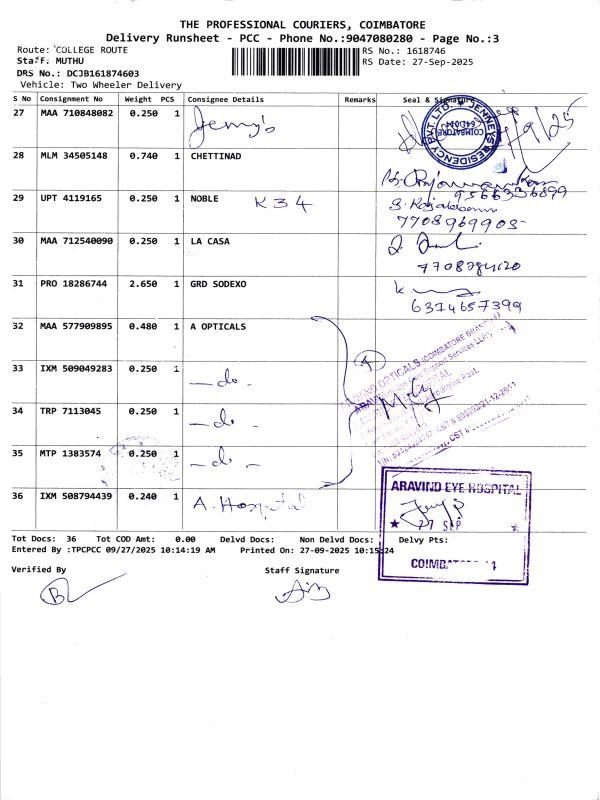 THE PROFESSIONAL COURIERS, COIMBATORE
Delivery Runsheet - PCC - Phone No.:9047080280 - Page No.:3
Route: COLLEGE ROUTE RS No.: 1618746
Staff: MUTHU RS Date: 27-Sep-2025
DRS No.: DCJB161874603
Vehicle: Two Wheeler Delivery
S No Consignment No Weight PCS Consignee Details Remarks Seal & Signature
27 MAA 710848082 0.250 1 Jenny's
JENNEYS RESIDENCY PVT. LTD.
COIMBATORE
641014
28 MLM 34505148 0.740 1 CHETTINAD
9566336899
29 UPT 4119165 0.250 1 NOBLE K34
7708969905
30 MAA 712540090 0.250 1 LA CASA
7708784120
31 PRO 18286744 2.650 1 GRD SODEXO
6374657399
32 MAA 577909895 0.480 1 A OPTICALS
33 IXM 509049283 0.250 1 - do -
34 TRP 7113045 0.250 1 - do -
35 MTP 1383574 0.250 1 - do -
36 IXM 508794439 0.240 1 A. Hospital
ARAVIND EYE HOSPITAL
27 SEP
COIMBATORE
Tot Docs: 36 Tot COD Amt: 0.00 Delvd Docs: Non Delvd Docs: Delvy Pts:
Entered By :TPCPCC 09/27/2025 10:14:19 AM Printed On: 27-09-2025 10:15:24
Verified By Staff Signature